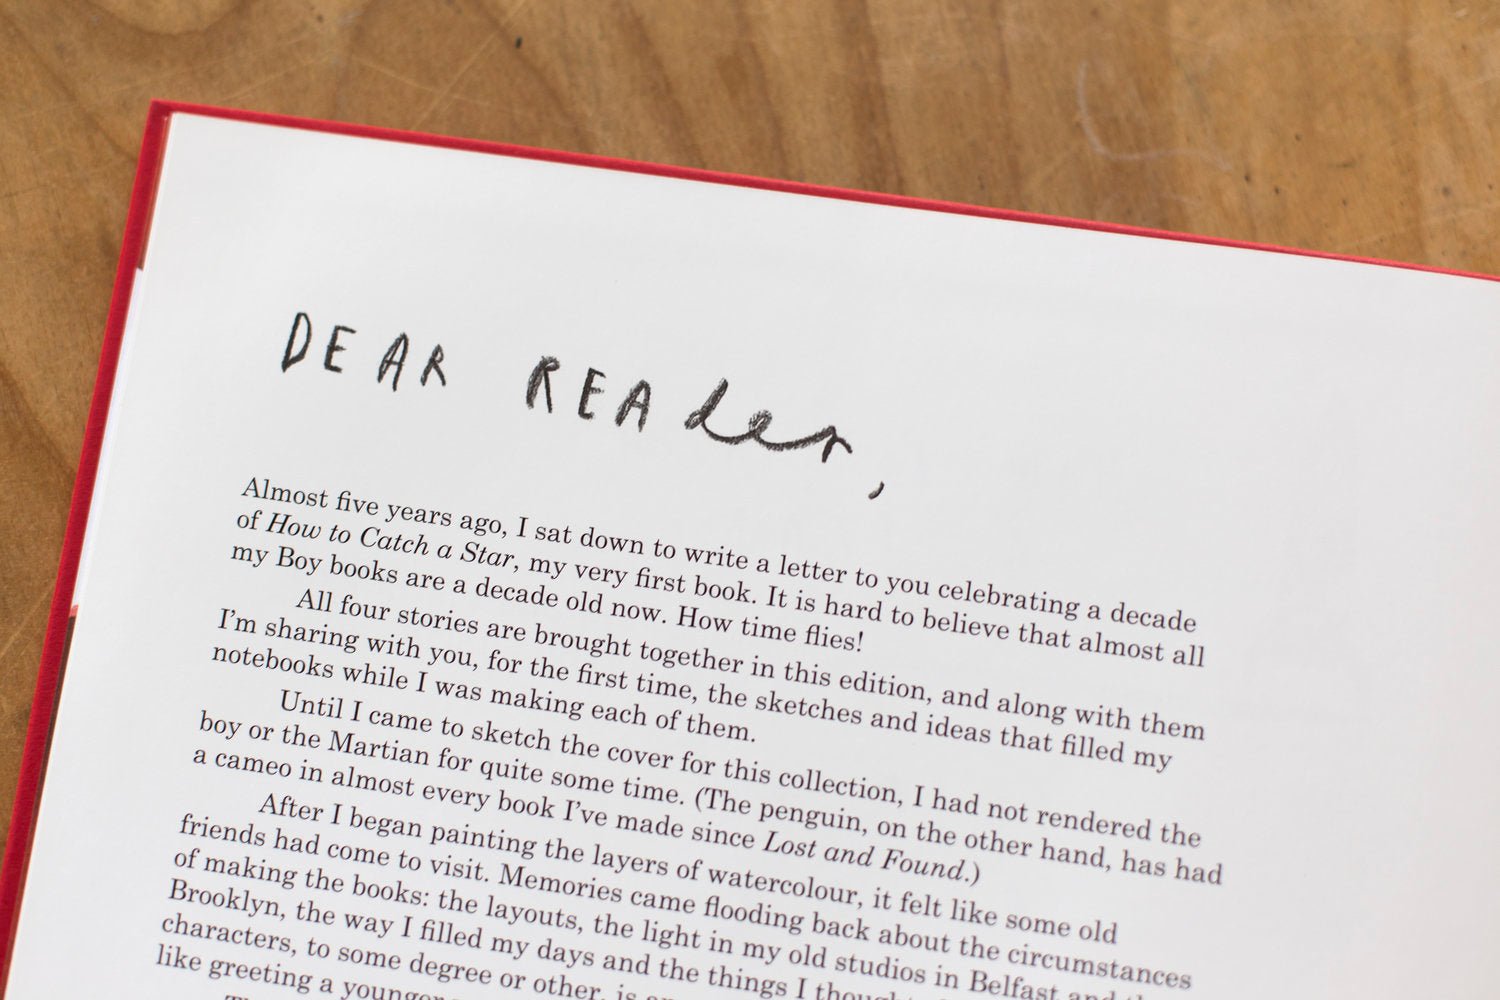 DEAR READer,
Almost five years ago, I sat down to write a letter to you celebrating a decade
of How to Catch a Star, my very first book. It is hard to believe that almost all
my Boy books are a decade old now. How time flies!
All four stories are brought together in this edition, and along with them
I'm sharing with you, for the first time, the sketches and ideas that filled my
notebooks while I was making each of them.
Until I came to sketch the cover for this collection, I had not rendered the
boy or the Martian for quite some time. (The penguin, on the other hand, has had
a cameo in almost every book I've made since Lost and Found.)
After I began painting the layers of watercolour, it felt like some old
friends had come to visit. Memories came flooding back about the circumstances
of making the books: the layouts, the light in my old studios in Belfast and
Brooklyn, the way I filled my days and the things I
characters, to some degree or other, is
like greeting a younger